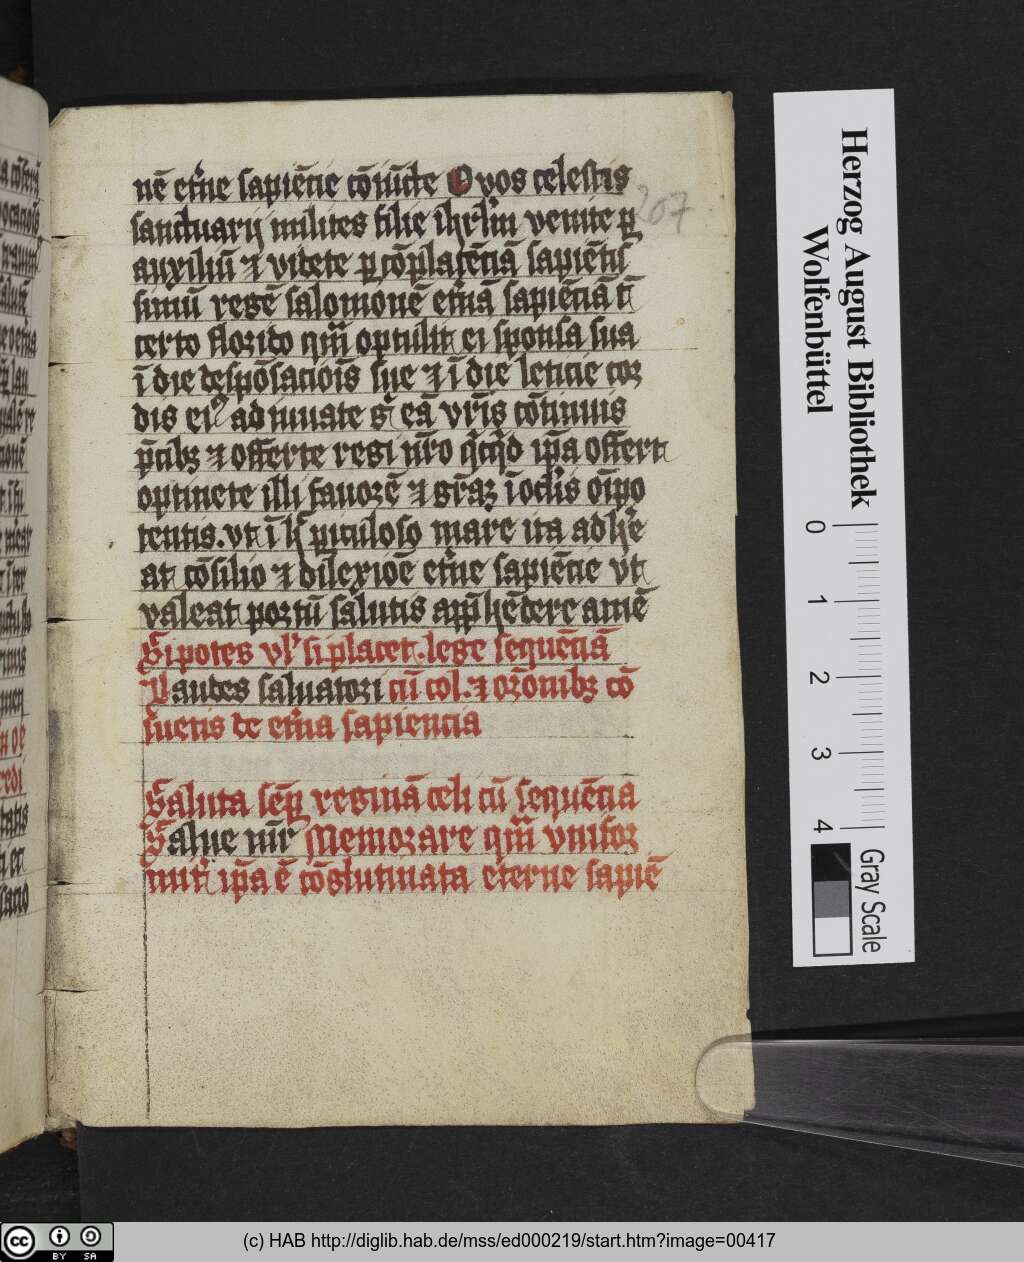 nē et̄ne sapiēcie cōiūcte O vos celestis
sanctuarij milites filie ihrl̄m venite p̱
auxiliū ⁊ videte p̱ cōplacēciā sapiētis
simū regē salomonē et̄nā sapiēciā ī
certo florido qm̄ optulit ei sponsa sua
ī die despōsaciōis sue ⁊ ī die leticie cor
dis eiꝰ adiuuate gͦ eā vr̄is cōtinuis
p̄cibꝫ ⁊ offerte regi nr̄o qͥcqͥd ip̄a offert
optinete illi fauorē ⁊ gr̄aꝫ ī oclīs oīpo
tentis. vt ī hͦ piculoso mare ita adhe᷑
at cōsilio ⁊ dilexioē et̄ne sapiēcie vt
valeat portū salutis app̄hēdere amē
Si potes vlˀ si placet. lege sequēciā
Laudes saluatori cū col. ⁊ or̄onibꝫ cō
suetis de et̄na sapiencia
Saluta sēp̱ reginā celi cū sequēcia
Salue mr̄ Memorare qm̄ vnifor
mit᷑ ip̄a ē cōglutinata eterne sapiē
207
Herzog August Bibliothek
Wolfenbüttel
0 1 2 3 4
Gray Scale
cc BY SA
(c) HAB http://diglib.hab.de/mss/ed000219/start.htm?image=00417